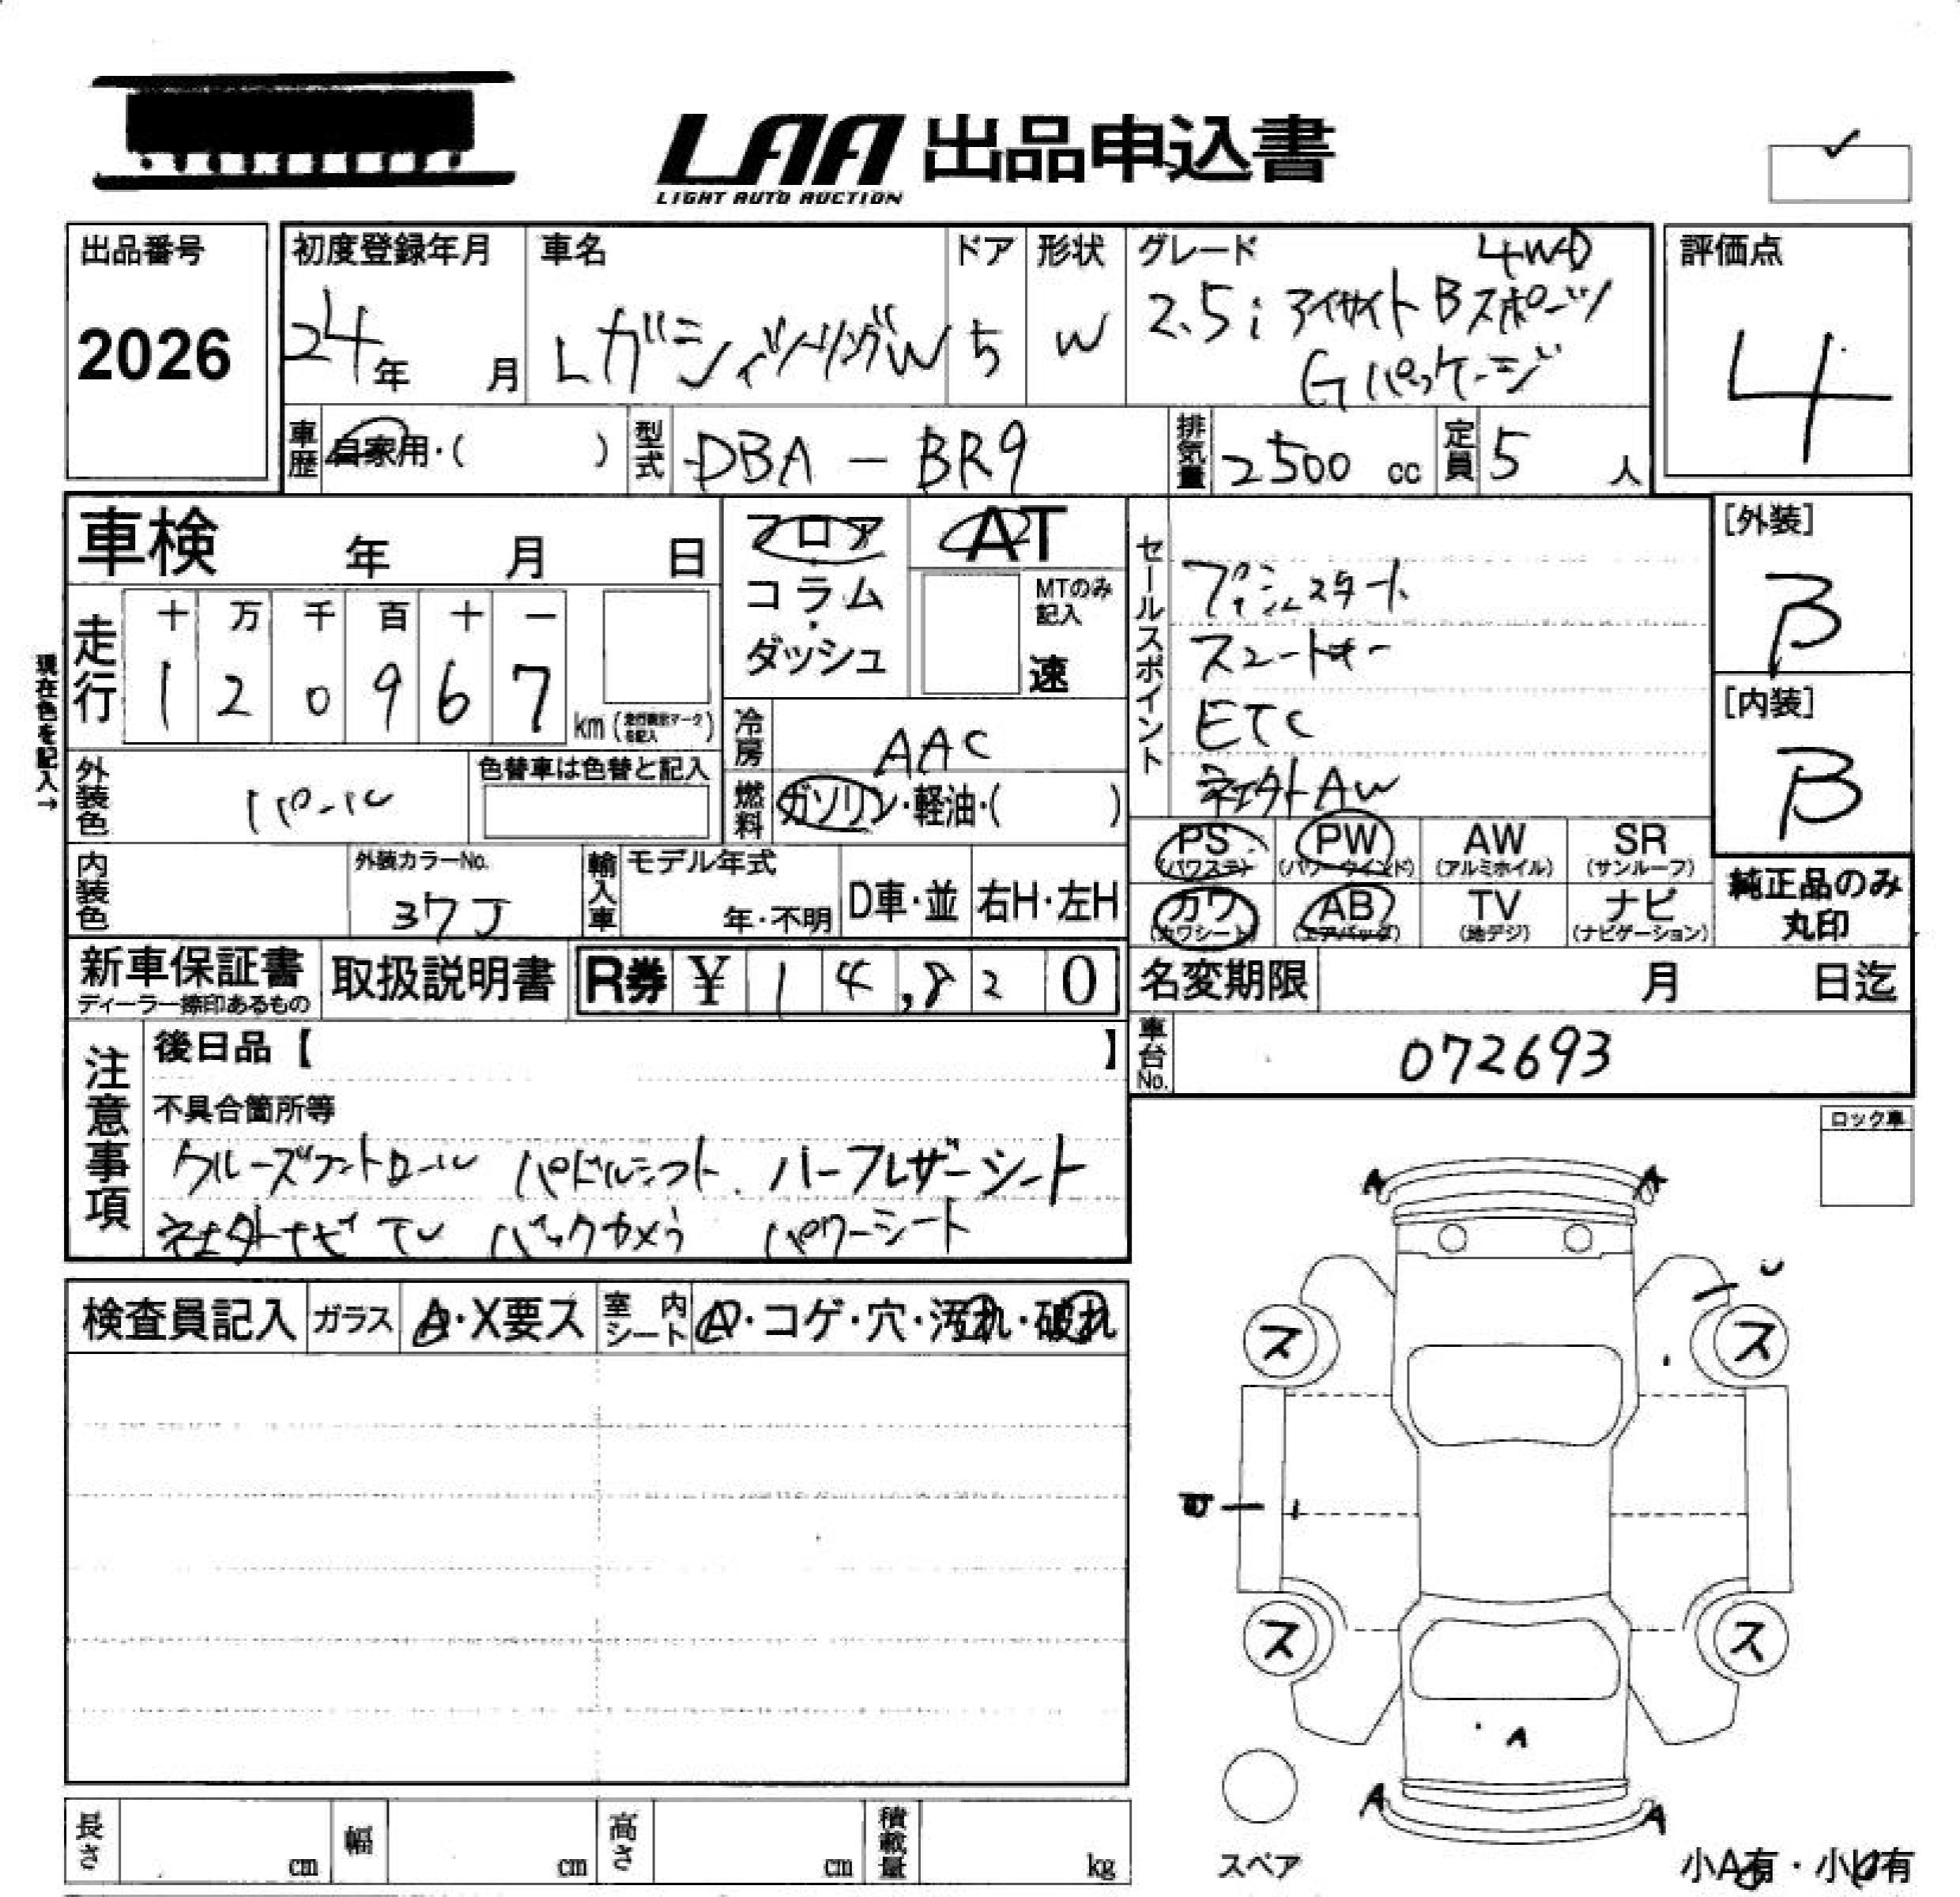 LAA 出品申込書
LIGHT AUTO AUCTION
出品番号
2026
初度登録年月
24年 月
車名
レガシィツーリングW
ドア
5
形状
W
グレード
4WD
2.5i アイサイト Bスポーツ
Gパッケージ
評価点
4
車歴 自家用・( )
型式 DBA-BR9
排気量 2500 cc
定員 5 人
車検 年 月 日
フロア
コラム
・
ダッシュ
AT
MTのみ
記入
速
セールスポイント
プッシュスタート
スマートキー
ETC
社外AW
[外装]
B
[内装]
B
現在色を記入→
走行
十 万 千 百 十 一
1 2 0 9 6 7 km
冷房 AAC
燃料 ガソリン・軽油・( )
外装色 パール
色替車は色替と記入
内装色
外装カラーNo.
37J
輸入車 モデル年式
年・不明
D車・並 右H・左H
PS
(パワステ)
PW
(パワーウインド)
AW
(アルミホイル)
SR
(サンルーフ)
カワ
(カワシート)
AB
(エアバッグ)
TV
(地デジ)
ナビ
(ナビゲーション)
純正品のみ
丸印
新車保証書
ディーラー捺印あるもの
取扱説明書
R券 ¥ 1 4,8 2 0
名変期限 月 日迄
車台No. 072693
注意事項
後日品【 】
不具合箇所等
クルーズコントロール パドルシフト ハーフレザーシート
社外ナビ TV バックカメラ パワーシート
ロック車
検査員記入 ガラス A・X要ス 室内シート A・コゲ・穴・汚れ・破れ
A A
ス ス
ス ス
A
A A
スペア
小A有・小U有
長さ cm
幅 cm
高さ cm
積載量 kg